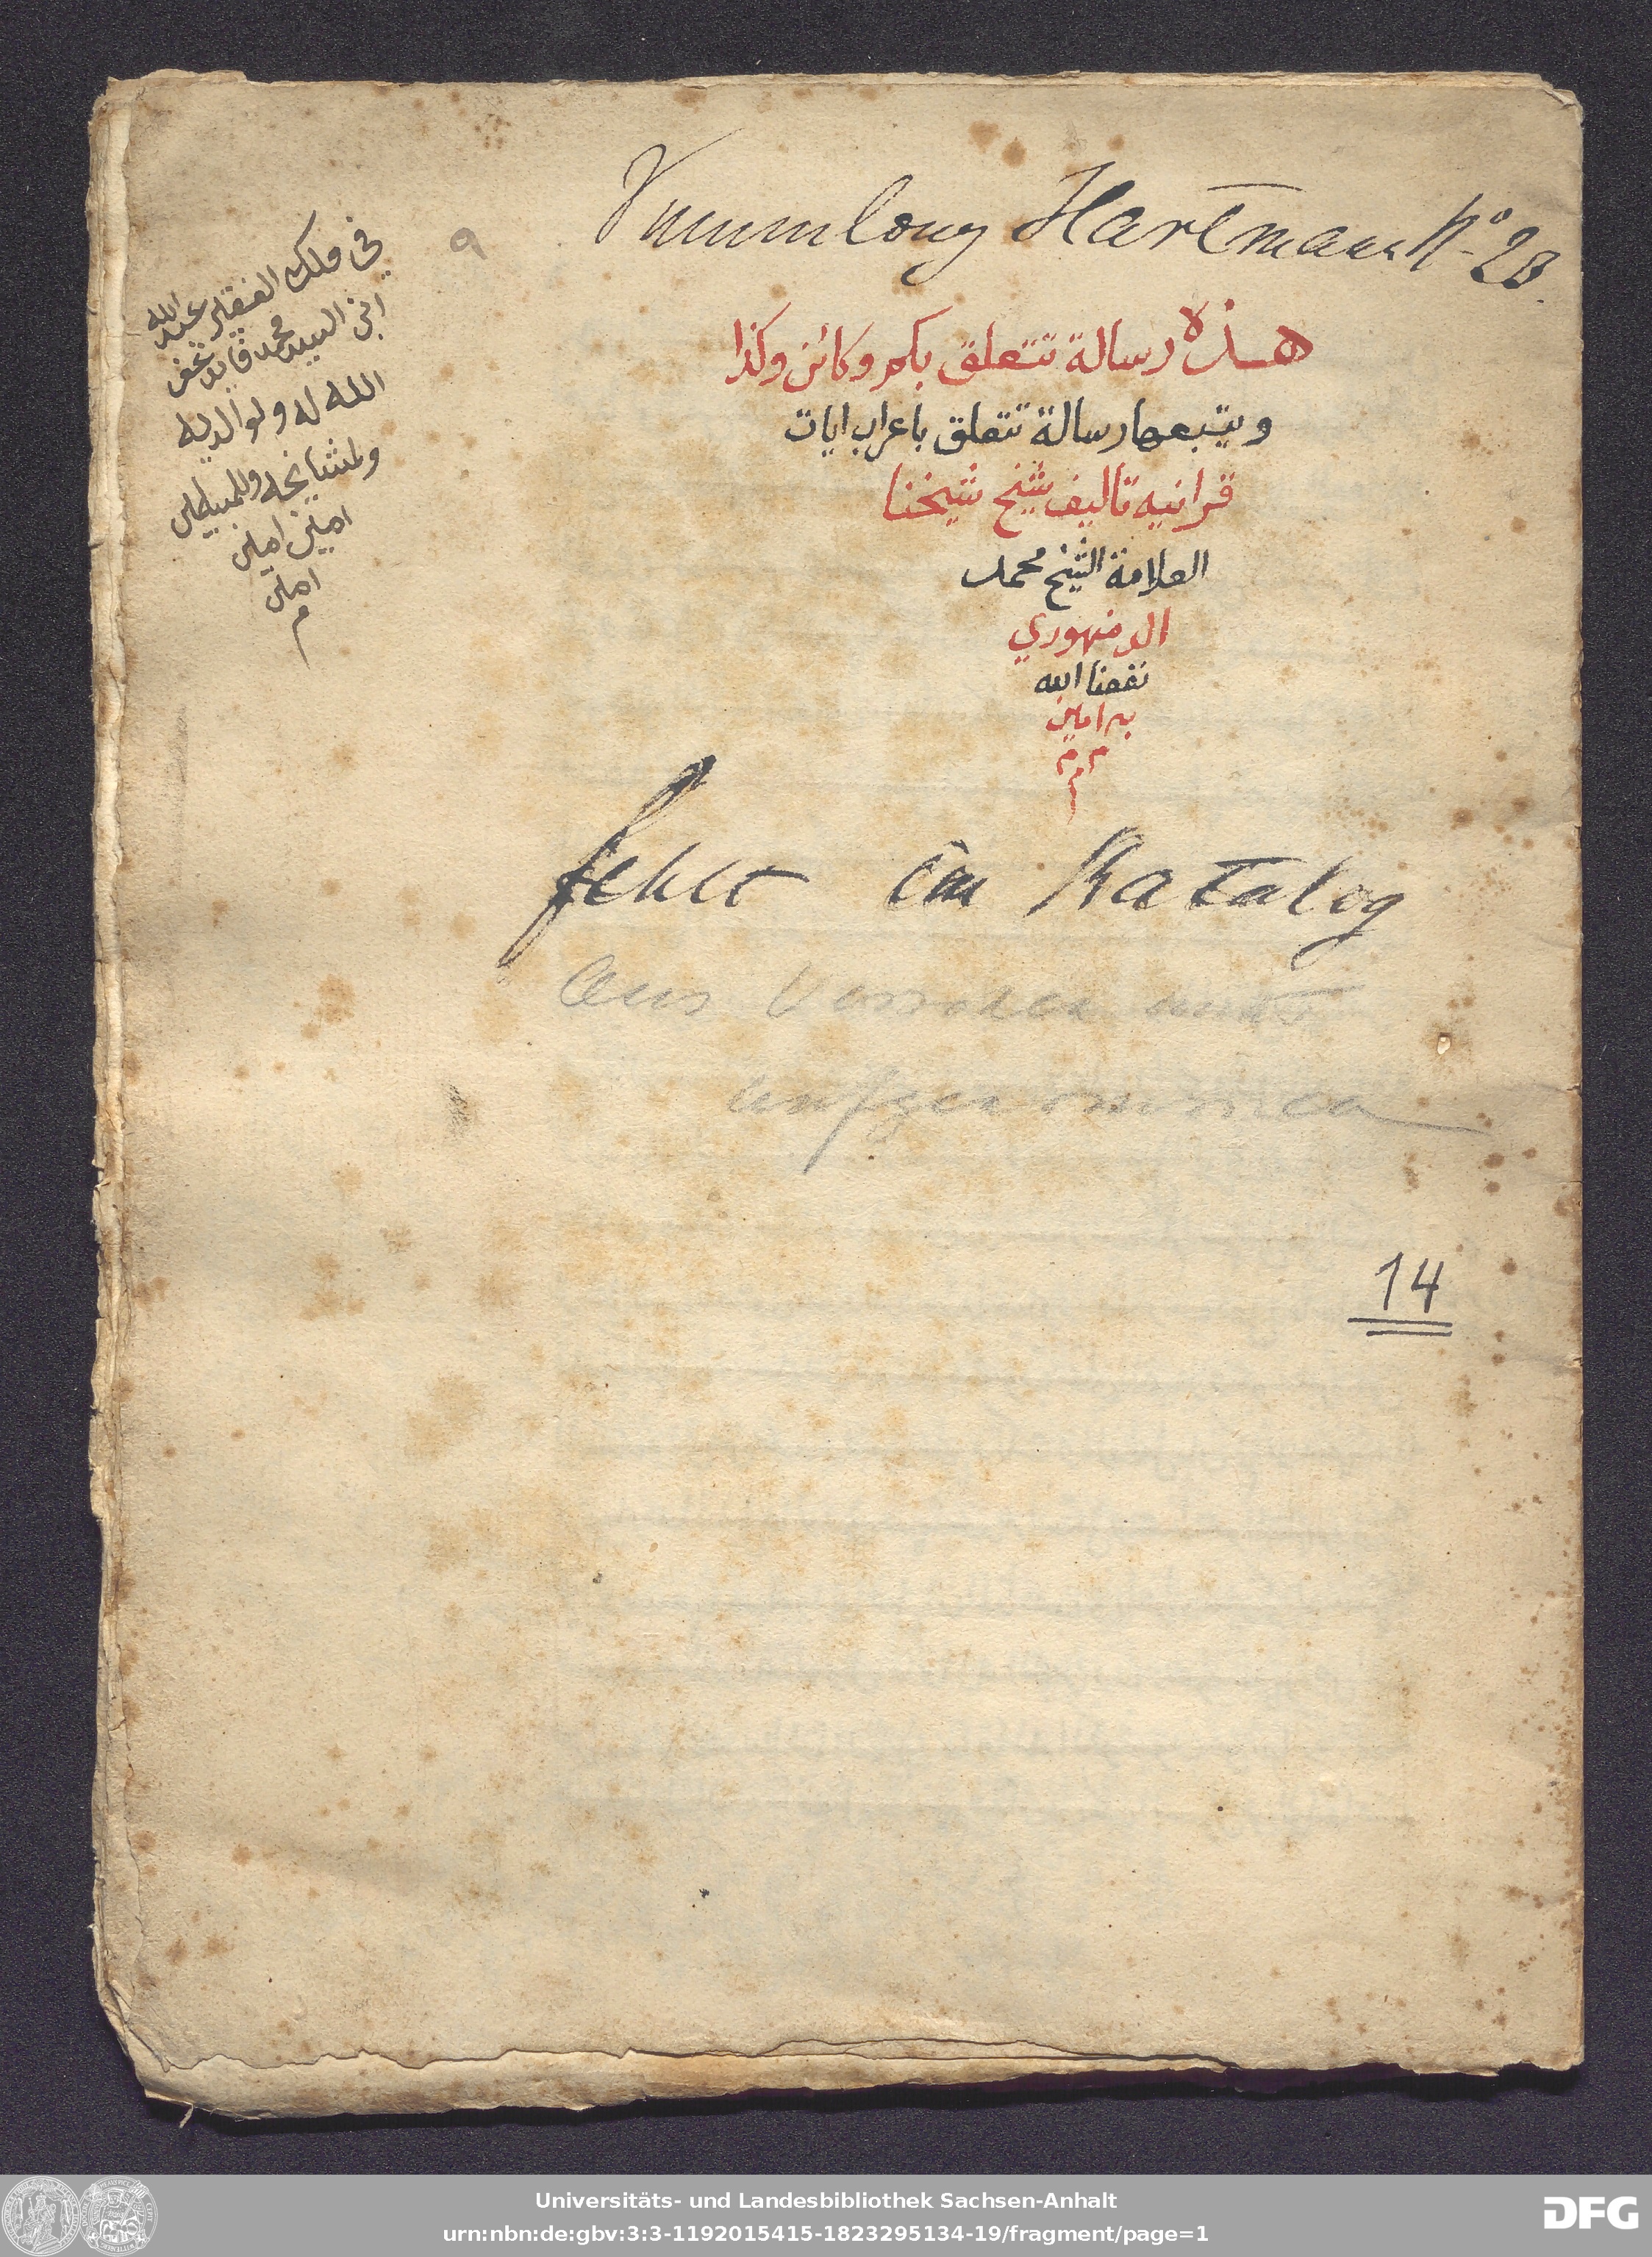 Sammlung Hartmann No 20.
٩
في ملك الفقير عبد الله
ابن السيد محمد قايد غفر
الله له ولوالديه
ولمشايخه وللمسلمين
امين امين
امين
م
هذه رسالة تتعلق بكم وكائن وكذا
ويتبعها رسالة تتعلق باعراب ايات
قرانيه تاليف شيخ شيخنا
العلامة الشيخ محمد
الدمنهوري
نفعنا الله
به امين
م م
م
fehlt im Katalog
Aus Versehen nicht
aufgenommen
14
Universitäts- und Landesbibliothek Sachsen-Anhalt
urn:nbn:de:gbv:3:3-1192015415-1823295134-19/fragment/page=1
DFG